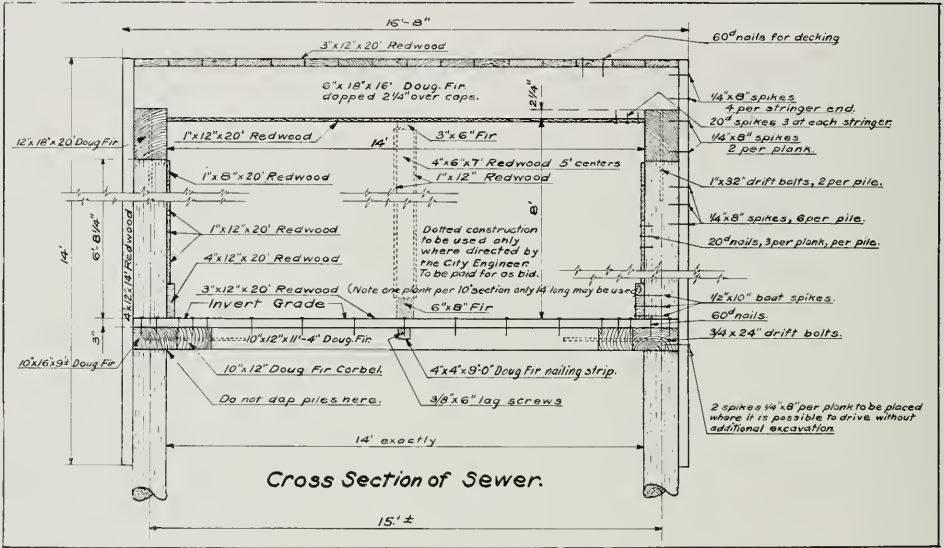 16'-8"
3"x12"x20' Redwood
60ᵈ nails for decking
6"x18"x16' Doug. Fir
dapped 2¼" over caps.
12¼"
¼"x8" spikes
4 per stringer end.
20ᵈ spikes 3 at each stringer.
¼"x8" spikes
2 per plank.
12"x18"x20' Doug Fir
1"x12"x20' Redwood
3"x6" Fir
14'
4"x6"x7' Redwood 5' centers
1"x12" Redwood
1"x8"x20' Redwood
1"x32" drift bolts, 2 per pile.
¼"x8" spikes, 6 per pile.
8'
6'-8¼"
14'
4x12x14' Redwood
1"x12"x20' Redwood
Dotted construction
to be used only
where directed by
the City Engineer.
To be paid for as bid.
20ᵈ nails, 3 per plank, per pile.
4"x12"x20' Redwood
3"x12"x20' Redwood (Note one plank per 10' section only 14' long may be used)
Invert Grade
6"x8" Fir
½"x10" boat spikes.
60ᵈ nails.
3"
10"x12"x11'-4" Doug. Fir.
3/4 x 24" drift bolts.
10"x16"x9'± Doug Fir
10"x12" Doug Fir Corbel.
4"x4"x9'-0" Doug Fir nailing strip.
Do not dap piles here.
3/8"x6" lag screws
2 spikes ¼"x8" per plank to be placed
where it is possible to drive without
additional excavation.
14' exactly
Cross Section of Sewer.
15.' ±